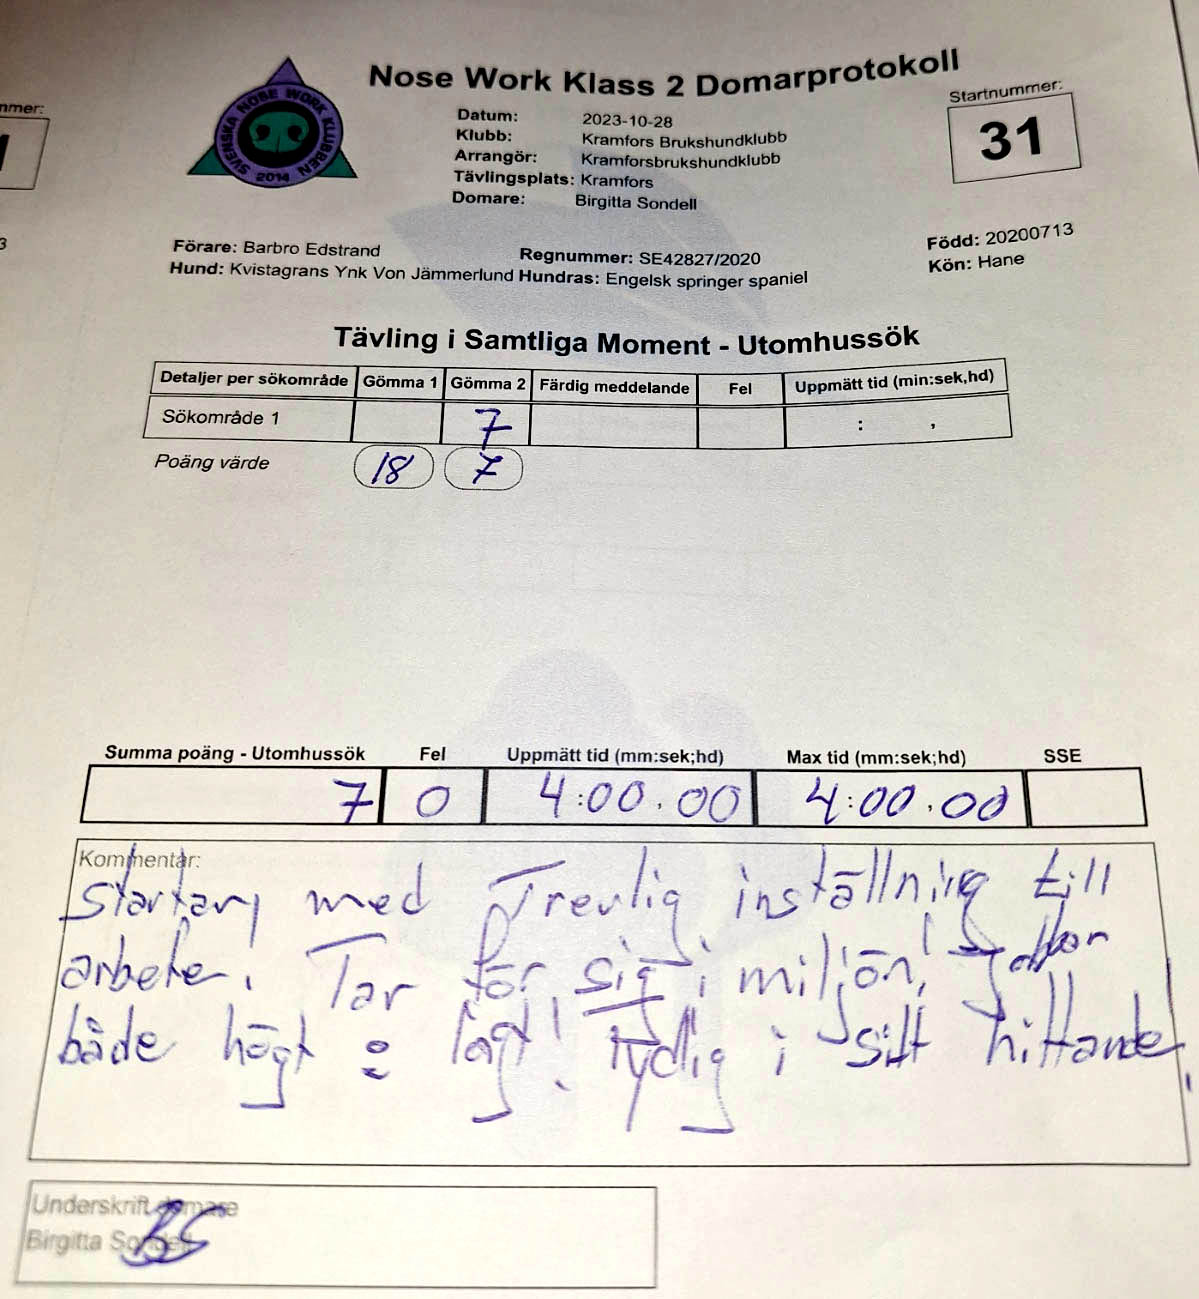 Nose Work Klass 2 Domarprotokoll
Startnummer:
31
Datum: 2023-10-28
Klubb: Kramfors Brukshundklubb
Arrangör: Kramforsbrukshundklubb
Tävlingsplats: Kramfors
Domare: Birgitta Sondell
SVENSKA NOSE WORK KLUBBEN
2014
Förare: Barbro Edstrand Regnummer: SE42827/2020 Född: 20200713
Hund: Kvistagrans Ynk Von Jämmerlund Hundras: Engelsk springer spaniel Kön: Hane
Tävling i Samtliga Moment - Utomhussök
Detaljer per sökområde Gömma 1 Gömma 2 Färdig meddelande Fel Uppmätt tid (min:sek,hd)
Sökområde 1 7 : ,
Poäng värde 18 7
Summa poäng - Utomhussök Fel Uppmätt tid (mm:sek;hd) Max tid (mm:sek;hd) SSE
7 0 4:00.00 4:00.00
Kommentar:
med Trevlig inställning till
arbete. Tar för sig i miljön! Jobbar
både högt o lågt! Tydlig i sitt hittande.
Underskrift domare
Birgitta Sondell
BS